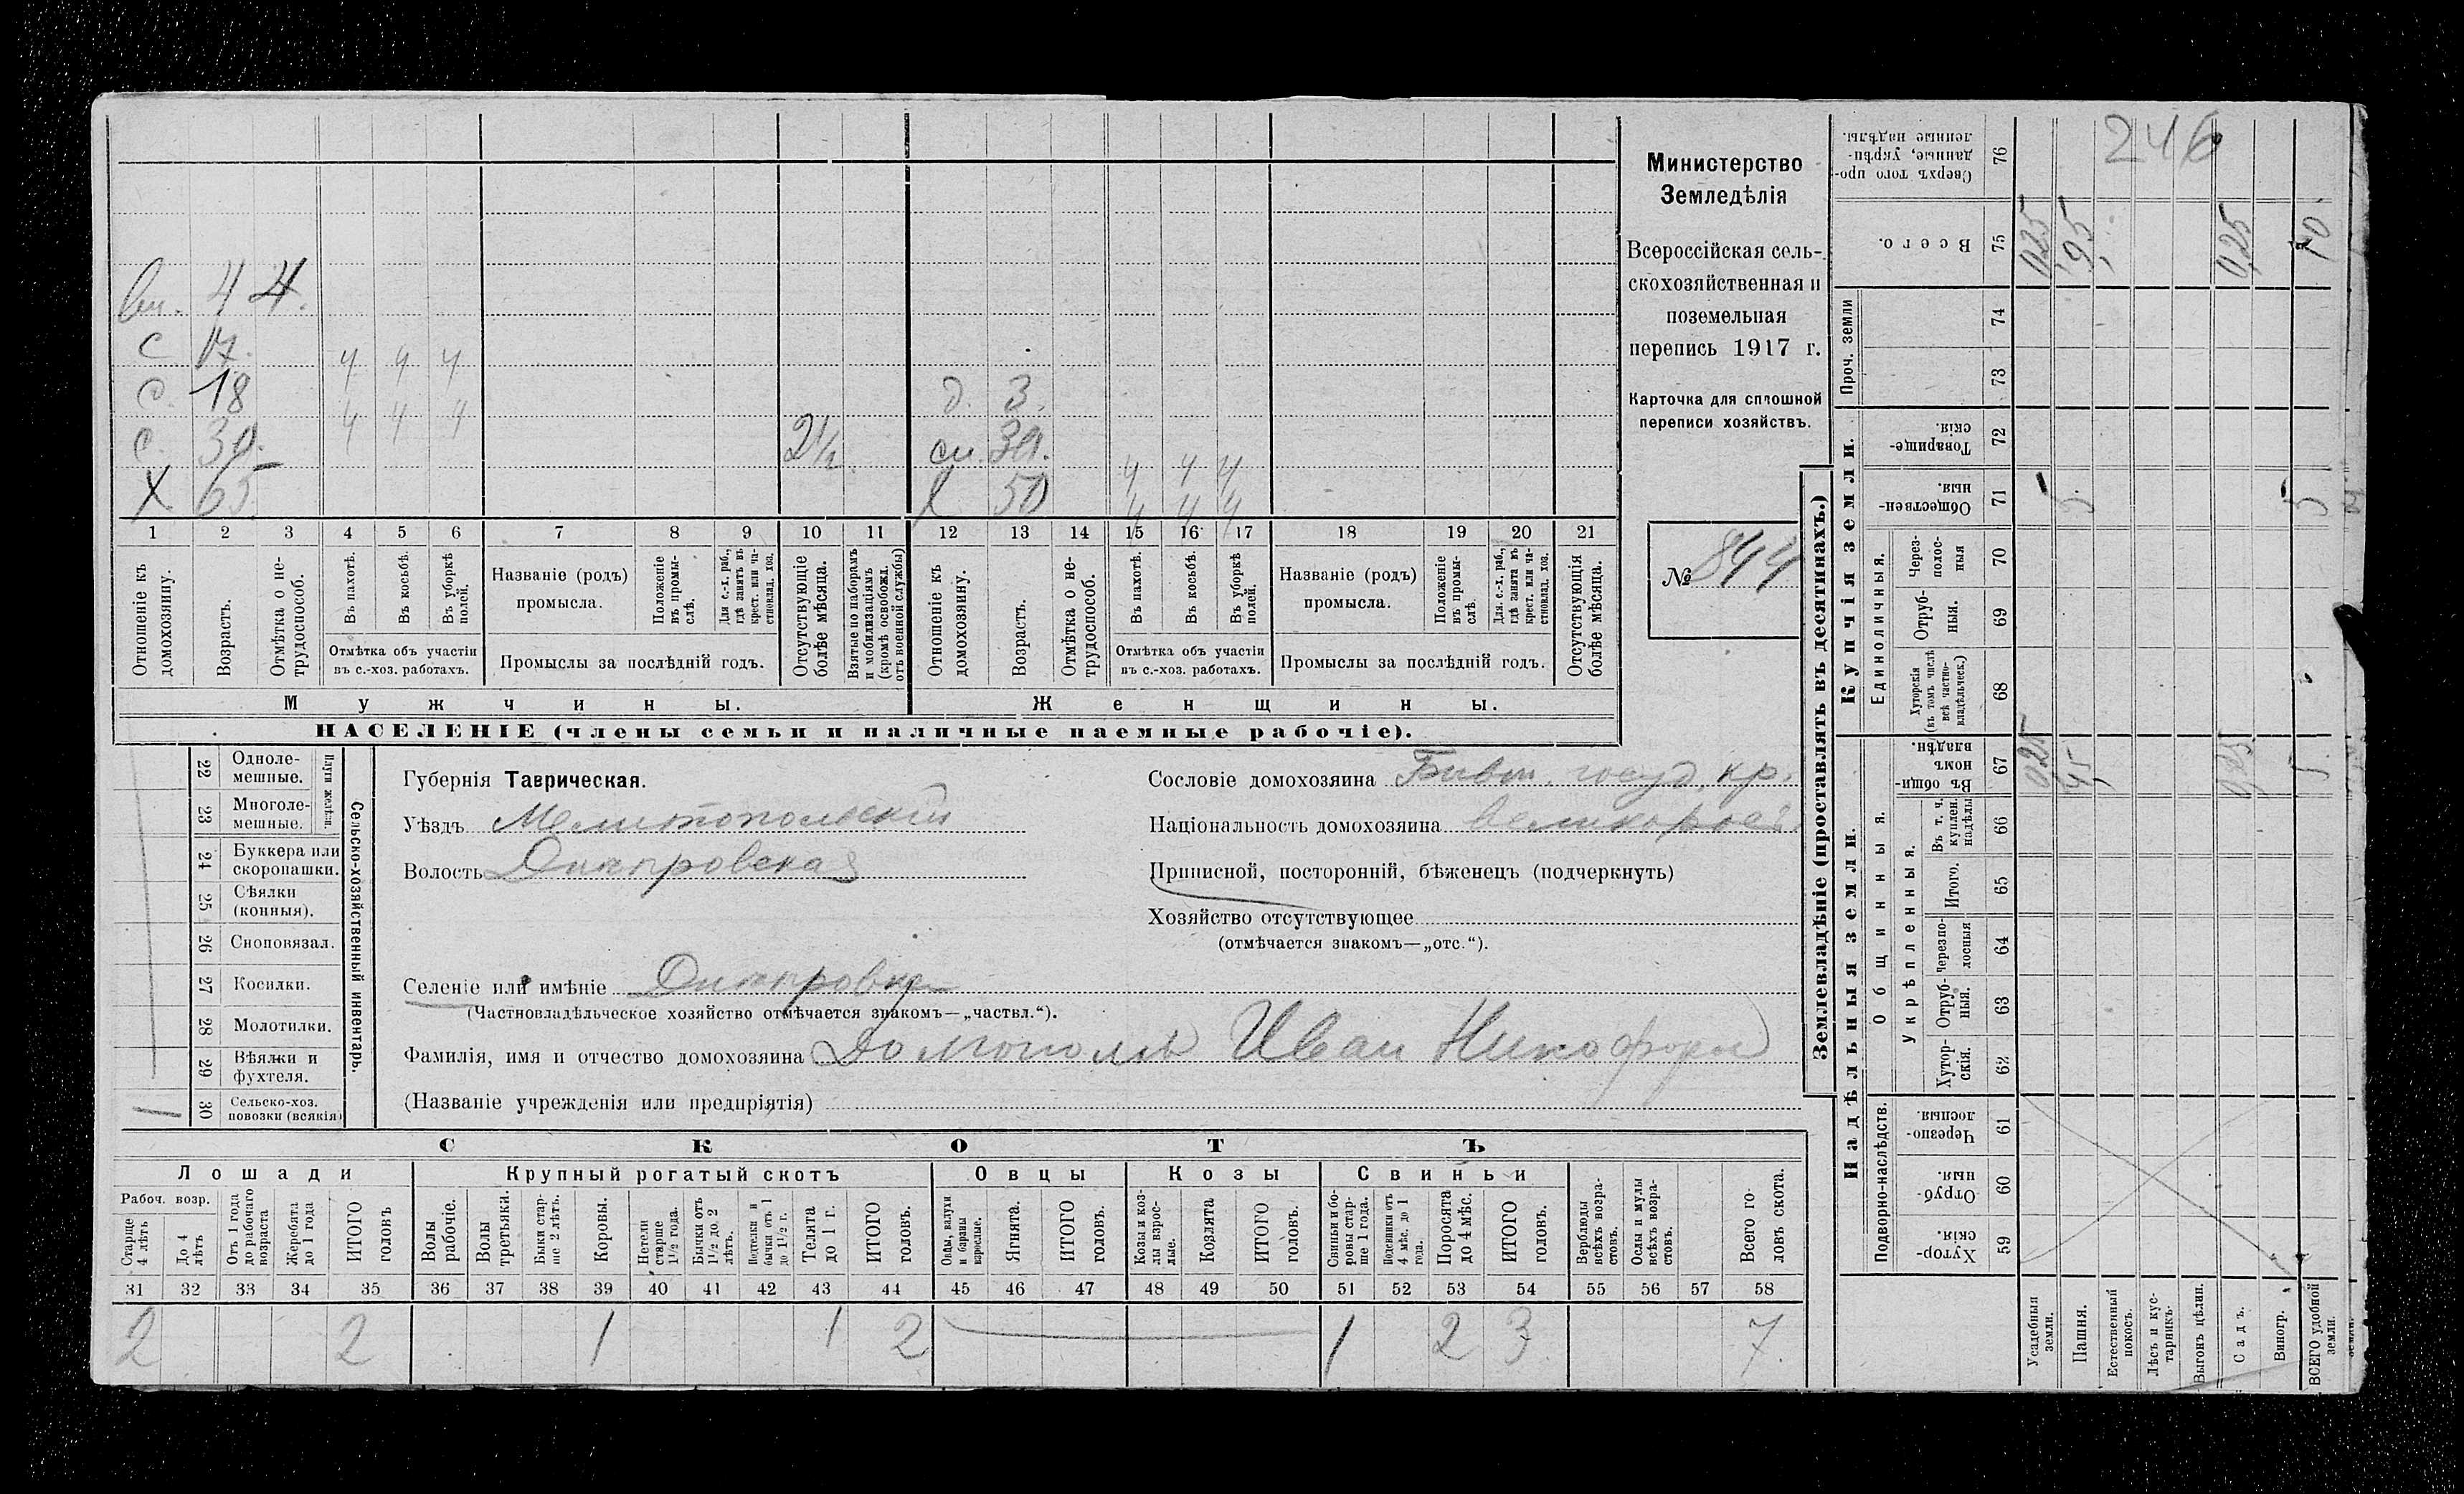 вн. 4 4.
с 17. ч ч ч
с. 18 ч ч ч д. 3.
с. 30. 2½ сн. 30. ч ч ч
Х 65 Х 50 ч ч ч
1 2 3 4 5 6 7 8 9 10 11 12 13 14 15 16 17 18 19 20 21
Отношеніе къ домохозяину.
Возрастъ.
Отмѣтка о не-
трудоспособ.
Въ пахотѣ.
Въ косьбѣ.
Въ уборкѣ полей.
Отмѣтка объ участіи
въ с.-хоз. работахъ.
Названіе (родъ)
промысла.
Положеніе
въ промы-
слѣ.
Для с.-х. раб.,
гдѣ занятъ въ
крест. или ча-
стновлад. хоз.
Промыслы за послѣдній годъ.
Отсутствующіе
болѣе мѣсяца.
Взятые по наборамъ
и мобилизаціямъ
(кромѣ освобожд.
отъ военной службы)
Отношеніе къ
домохозяину.
Возрастъ.
Отмѣтка о не-
трудоспособ.
Въ пахотѣ.
Въ косьбѣ.
Въ уборкѣ
полей.
Отмѣтка объ участіи
въ с.-хоз. работахъ.
Названіе (родъ)
промысла.
Положеніе
въ промы-
слѣ.
Для с.-х. раб.,
гдѣ занята въ
крест. или ча-
стновлад. хоз.
Промыслы за послѣдній годъ.
Отсутствующія
болѣе мѣсяца.
Мужчины.
Женщины.
НАСЕЛЕНІЕ (члены семьи и наличные наемные рабочіе).
Министерство
Земледѣлія
Всероссійская сель-
скохозяйственная и
поземельная
перепись 1917 г.
Карточка для сплошной
переписи хозяйствъ.
№ 844
22 Одноле-
мешные.
23 Многоле-
мешные.
Плуги желѣзн.
24 Буккера или
скоропашки.
25 Сѣялки
(конныя).
26 Сноповязал.
27 Косилки.
28 Молотилки.
29 Вѣялки и
фухтеля.
1 30 Сельско-хоз.
повозки (всякія)
Сельско-хозяйственный инвентарь.
Губернія Таврическая.
Уѣздъ Мелитопольскій
Волость Днѣпровская
Селеніе или имѣніе Днѣпровка
(Частновладѣльческое хозяйство отмѣчается знакомъ—„частвл.“).
Фамилія, имя и отчество домохозяина Долгополя Иван Никифоров
(Названіе учрежденія или предпріятія)
Сословіе домохозяина Бывш. госуд. кр.
Національность домохозяина великоросъ
Приписной, посторонній, бѣженецъ (подчеркнуть)
Хозяйство отсутствующее
(отмѣчается знакомъ—„отс.“).
СКОТЪ
Лошади
Крупный рогатый скотъ
Овцы
Козы
Свиньи
Рабоч. возр.
Старше
4 лѣтъ
До 4
лѣтъ
Отъ 1 года
до рабочаго
возраста
Жеребята
до 1 года
ИТОГО
головъ
Волы
рабочіе.
Волы
третьяки.
Быки стар-
ше 2 лѣтъ.
Коровы.
Нетели
старше
1½ года.
Бычки отъ
1½ до 2
лѣтъ.
Подтелки и
бычки отъ 1
до 1½ г.
Телята
до 1 г.
ИТОГО
головъ.
Овцы, валухи
и бараны
взрослые.
Ягнята.
ИТОГО
головъ.
Козы и коз-
лы взрос-
лые.
Козлята
ИТОГО
головъ.
Свиньи и бо-
ровы стар-
ше 1 года.
Подсвинки отъ
4 мѣс. до 1
года.
Поросята
до 4 мѣс.
ИТОГО
головъ.
Верблюды
всѣхъ возра-
стовъ.
Ослы и мулы
всѣхъ возра-
стовъ.
Всего го-
ловъ скота.
31 32 33 34 35 36 37 38 39 40 41 42 43 44 45 46 47 48 49 50 51 52 53 54 55 56 57 58
2 2 1 1 2 1 2 3 7.
Землевладѣніе (проставлять въ десятинахъ.)
246
Сверхъ того про-
данные, укрѣп-
ленные надѣлы.
76
Всего.
75 025 95 025 10
Проч. земли
74
73
Купчія земли.
Товарище-
скія.
72
Обществен-
ныя.
71 5 5
Единоличныя.
Через-
полос-
ныя
70
Отруб-
ныя.
69
Хуторскія
(въ томъ числѣ
всѣ частно-
владѣльческ.)
68
Надѣльныя земли.
Общинныя.
Въ общи-
номъ
владѣн.
67 025 45 025 5
Укрѣпленныя.
Въ т. ч.
куплен.
надѣлы
66
Итого.
65
Черезпо-
лосныя
64
Отруб-
ныя.
63
Хутор-
скія.
62
Подворно-наслѣдств.
Черезпо-
лосныя.
61
Отруб-
ныя.
60
Хутор-
скія.
59
Усадебныя
земли.
Пашня.
Естественный
покосъ.
Лѣсъ и кус-
тарникъ.
Выгонъ цѣлин.
Садъ.
Виногр.
ВСЕГО удобной
земли.